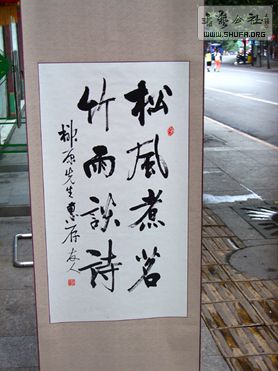 松風煮茗
竹雨談詩
先生惠存 友人
书艺公社
WWW.SHUFA.ORG